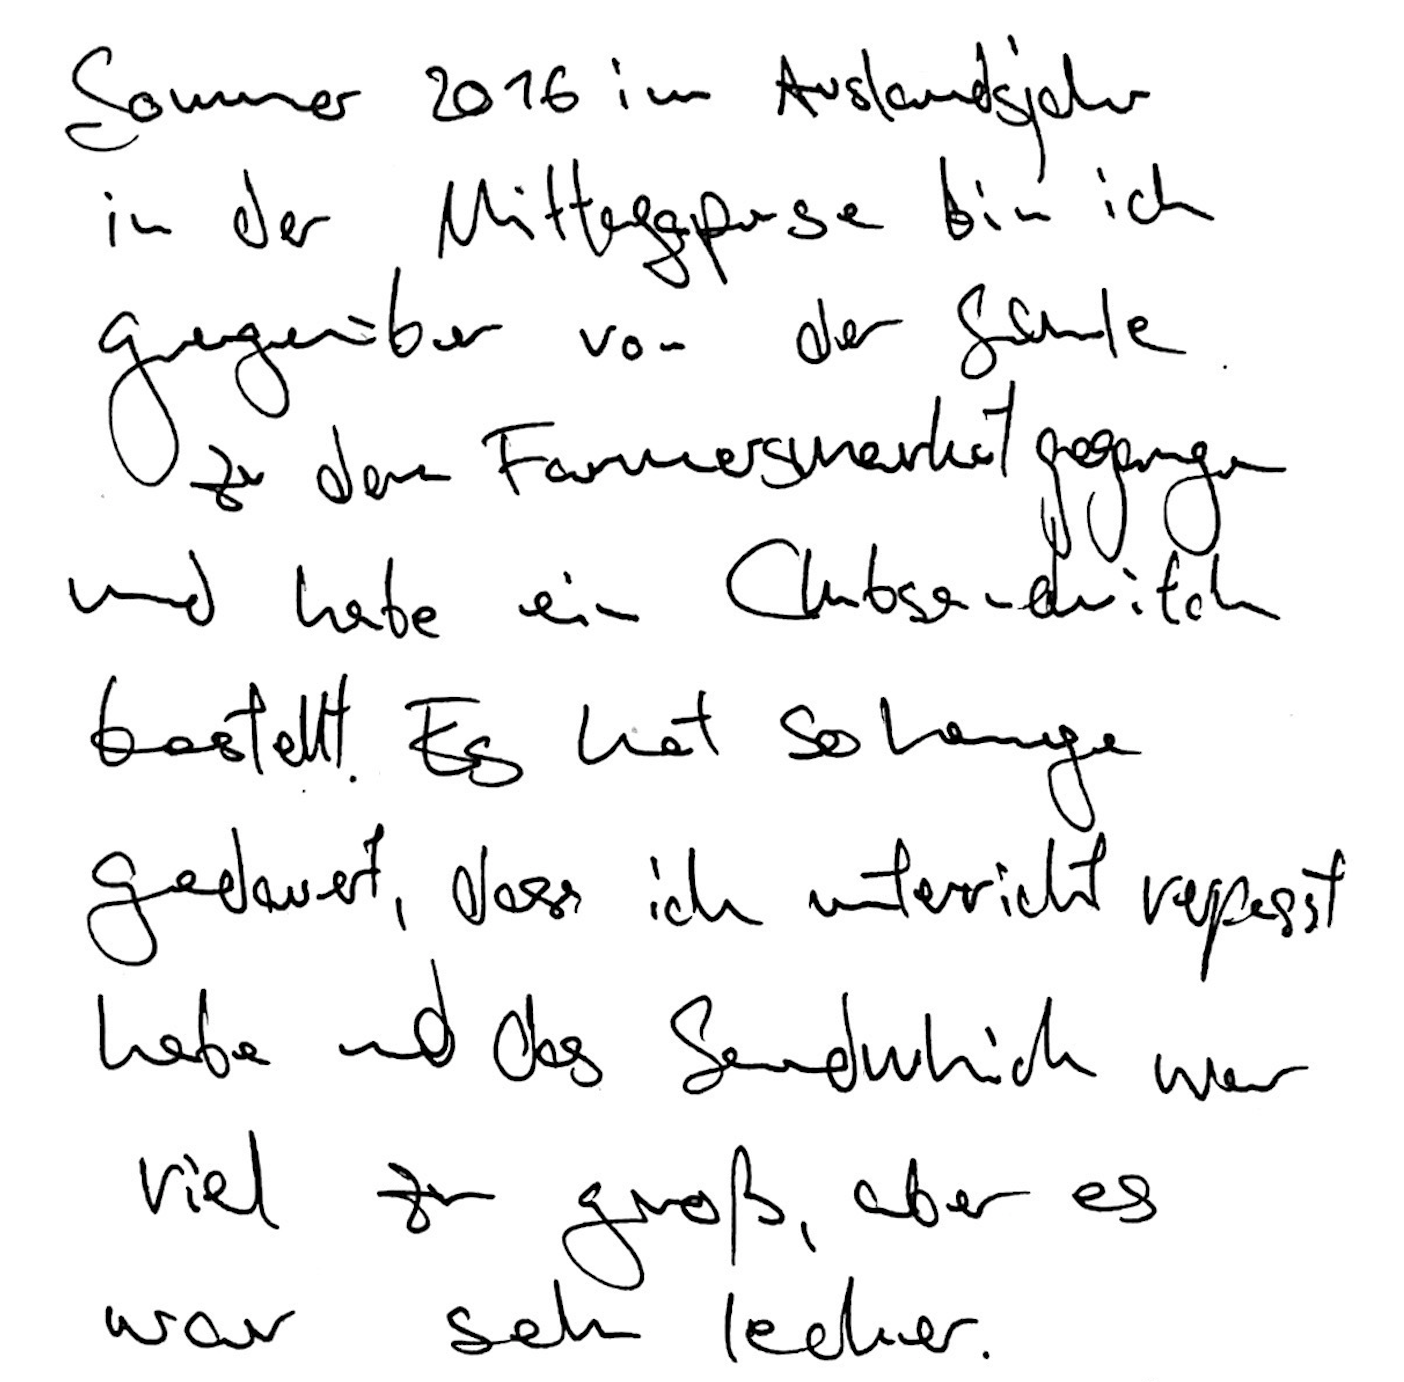 Sommer 2016 im Auslandsjahr
in der Mittagspause bin ich
gegenüber von der Schule
zu dem Farmersmarket gegangen
und habe ein Clubsandwitch
bestellt. Es hat so lange
gedauert, dass ich unterricht verpasst
habe und das Sandwhich war
viel zu groß, aber es
war sehr lecker.